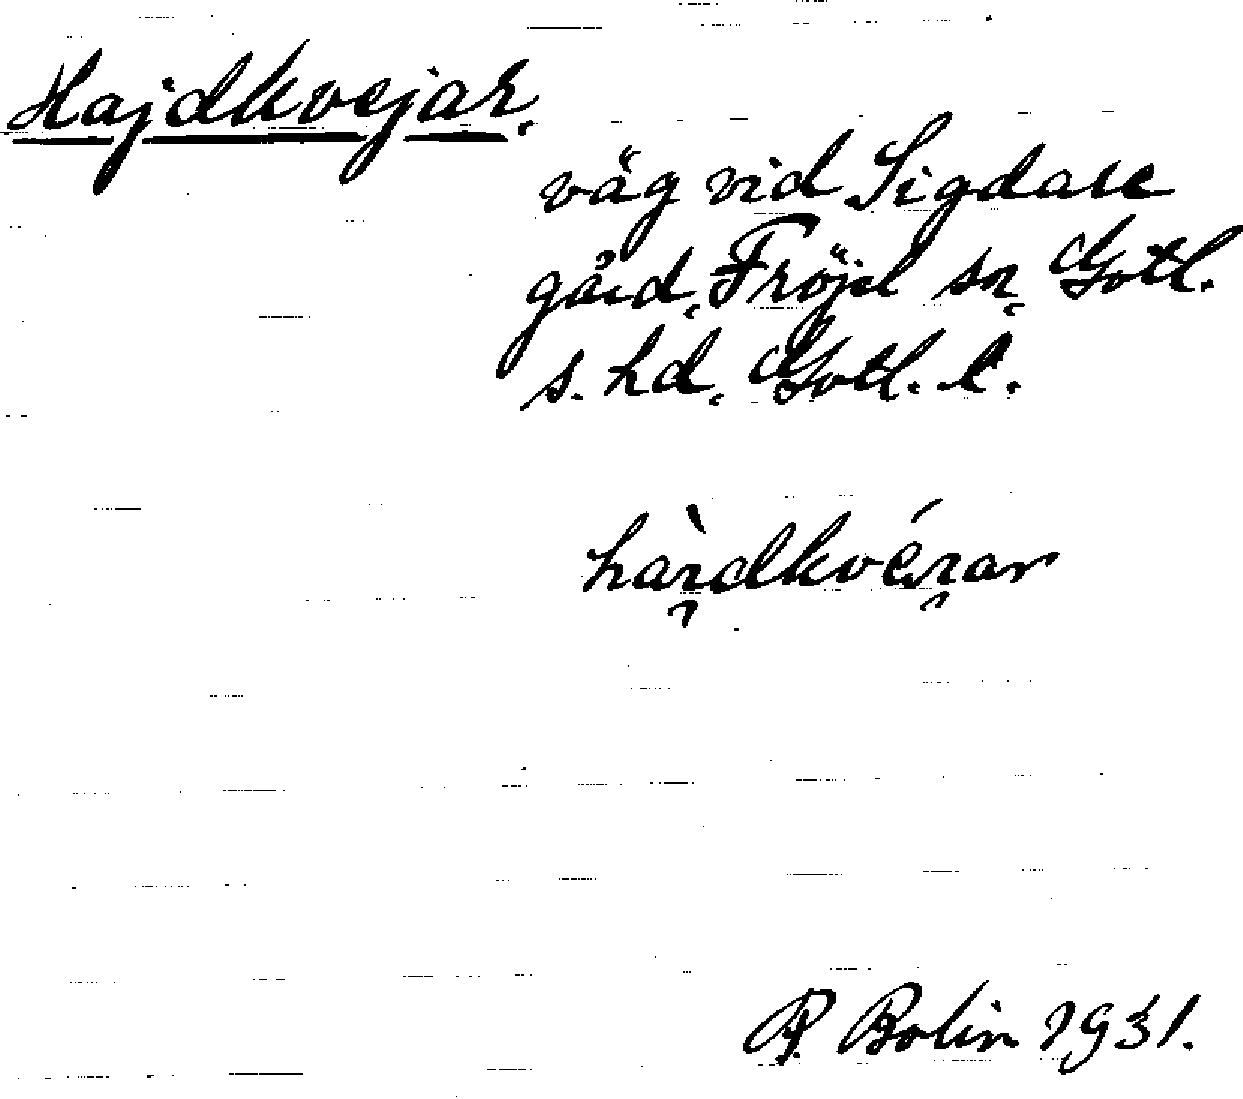 Hajdkvejar,
väg vid Sigdare
gård, Fröjel sn, Gotl.
s. hd, Gotl. l.
P. Bolin 1931.